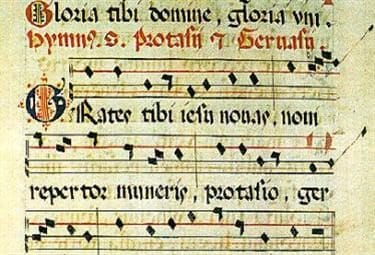 Gloria tibi domine, gloria vni
Hymnus. S. Protasii & Gervasii.
Grates tibi iesu nouas, noui
repertor muneris, protasio, ger